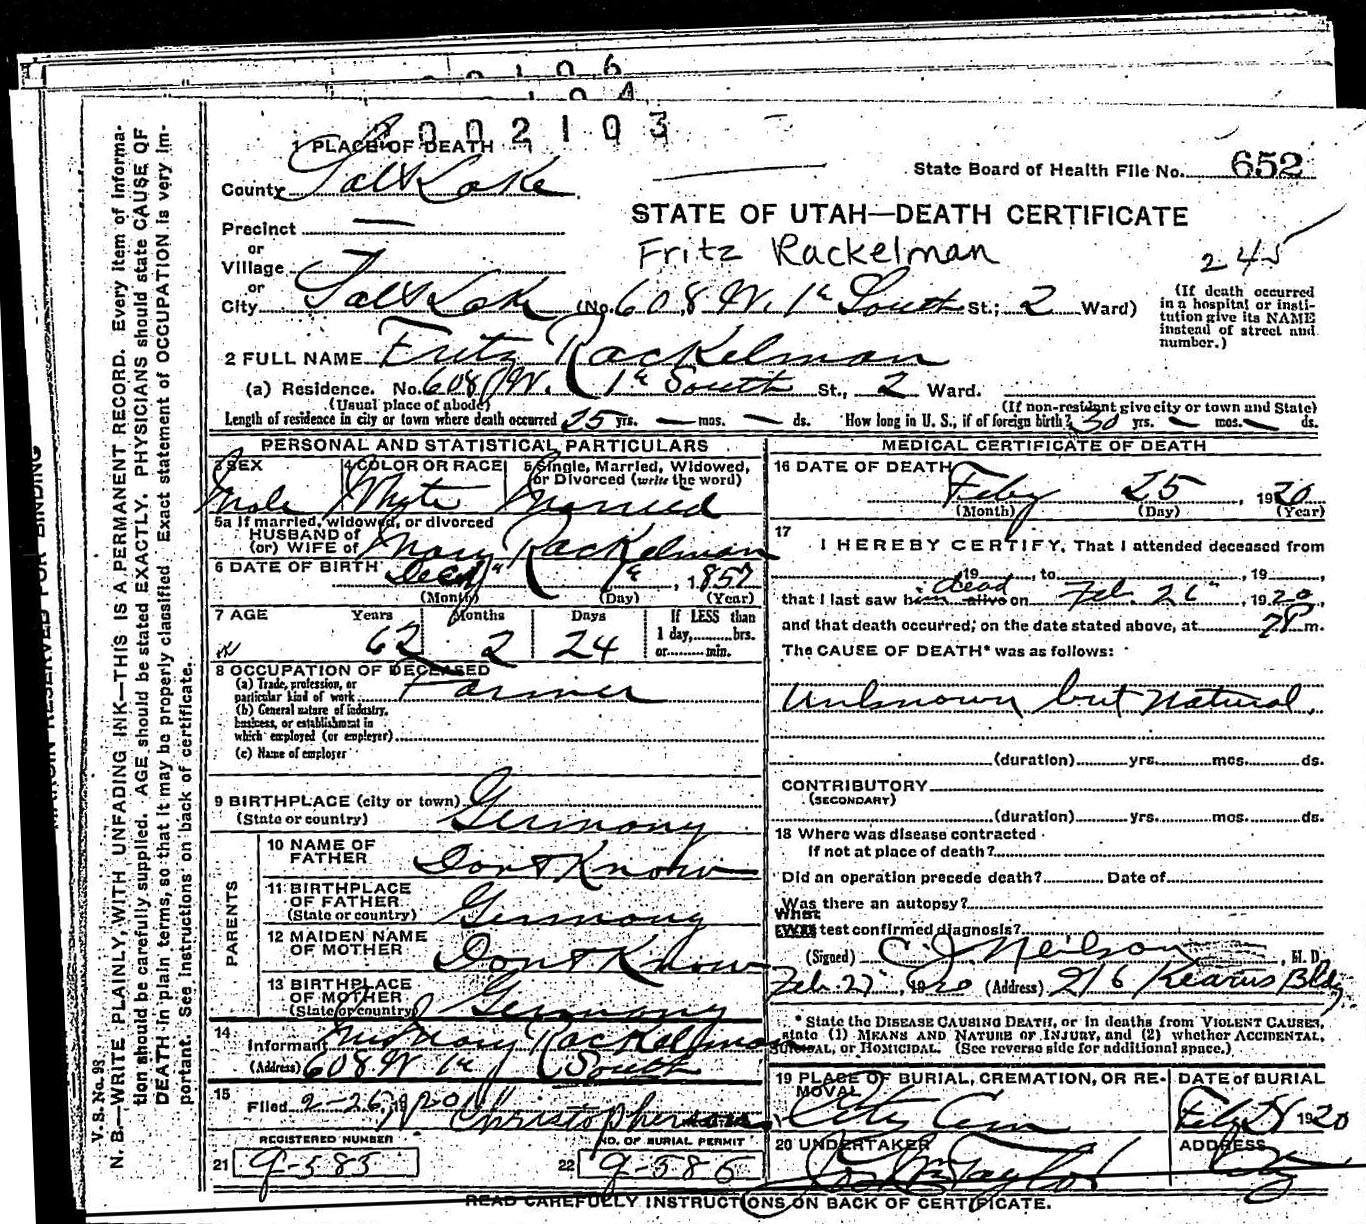 0 1 0 6
0 4
0002103
1 PLACE OF DEATH
County Salt Lake
State Board of Health File No. 652
STATE OF UTAH—DEATH CERTIFICATE
Precinct —
or
Village
or
Fritz Rackelman
245
City Salt Lake (No. 608 W. 1st South St.; 2 Ward)
(If death occurred in a hospital or institution give its NAME instead of street and number.)
2 FULL NAME Fritz Rackelman
(a) Residence. No. 608 W. 1st South St., 2 Ward.
(Usual place of abode) (If non-resident give city or town and State)
Length of residence in city or town where death occurred 25 yrs. — mos. — ds. How long in U. S., if of foreign birth? 30 yrs. — mos. — ds.
PERSONAL AND STATISTICAL PARTICULARS
3 SEX Male
4 COLOR OR RACE Whyte
5 Single, Married, Widowed, or Divorced (write the word) Married
5a If married, widowed, or divorced
HUSBAND of
(or) WIFE of Mary Rackelman
6 DATE OF BIRTH Dec 1st, 1857
(Month) (Day) (Year)
7 AGE Years 62 Months 2 Days 24 If LESS than 1 day, hrs. or min.
8 OCCUPATION OF DECEASED
(a) Trade, profession, or particular kind of work Farmer
(b) General nature of industry, business, or establishment in which employed (or employer)
(c) Name of employer
9 BIRTHPLACE (city or town)
(State or country) Germany
PARENTS
10 NAME OF FATHER Dont Know
11 BIRTHPLACE OF FATHER (State or country) Germany
12 MAIDEN NAME OF MOTHER Dont Know
13 BIRTHPLACE OF MOTHER (State or country) Germany
14 Informant Mrs Mary Rackelman
(Address) 608 W 1st South
15 Filed 2-26, 1920 Christopherson
REGISTERED NUMBER
21 9-585
NO. OF BURIAL PERMIT
22 9-586
MEDICAL CERTIFICATE OF DEATH
16 DATE OF DEATH
Feby 25, 1920
(Month) (Day) (Year)
17 I HEREBY CERTIFY, That I attended deceased from
, 19 , to , 19 ,
that I last saw him alive dead on Feb. 26", 1920,
and that death occurred, on the date stated above, at m.
The CAUSE OF DEATH* was as follows:
Unknown but Natural.
(duration) yrs. mos. ds.
CONTRIBUTORY
(SECONDARY)
(duration) yrs. mos. ds.
18 Where was disease contracted
If not at place of death?
Did an operation precede death? Date of
Was there an autopsy?
What test confirmed diagnosis?
(Signed) C. J. Neilson, M. D.
Feb. 27", 1920 (Address) 216 Kearns Bldg
* State the DISEASE CAUSING DEATH, or in deaths from VIOLENT CAUSES,
state (1) MEANS AND NATURE OF INJURY, and (2) whether ACCIDENTAL,
SUICIDAL, or HOMICIDAL. (See reverse side for additional space.)
19 PLACE OF BURIAL, CREMATION, OR REMOVAL City Cem
DATE of BURIAL Feby 28 1920
20 UNDERTAKER Taylor
ADDRESS City
READ CAREFULLY INSTRUCTIONS ON BACK OF CERTIFICATE.
MARGIN RESERVED FOR BINDING
V. S. No. 98
N. B.—WRITE PLAINLY, WITH UNFADING INK—THIS IS A PERMANENT RECORD. Every item of informa-
tion should be carefully supplied. AGE should be stated EXACTLY. PHYSICIANS should state CAUSE OF
DEATH in plain terms, so that it may be properly classified. Exact statement of OCCUPATION is very im-
portant. See instructions on back of certificate.